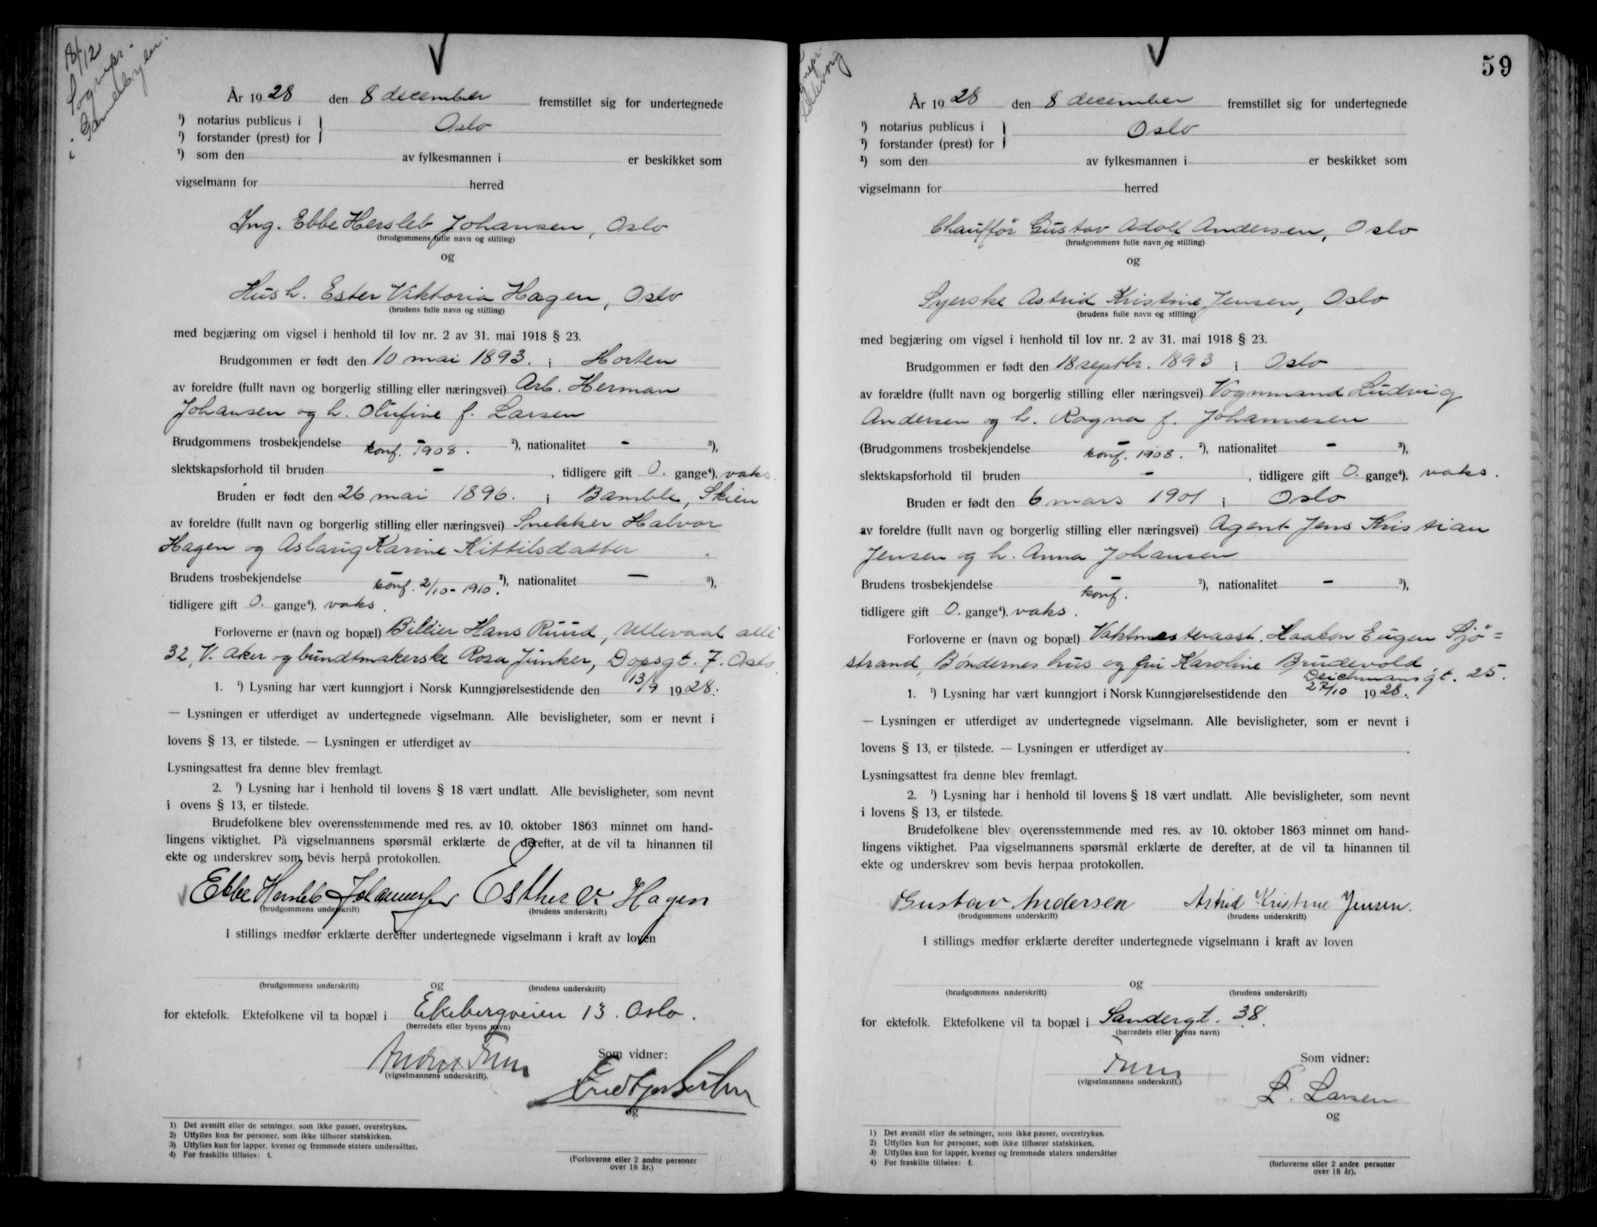 18/12
Sognepr.
i Gamlebyen.
År 1928 den 8 december fremstillet sig for undertegnede
¹) notarius publicus i
¹) forstander (prest) for } Oslo
¹) som den av fylkesmannen i er beskikket som
vigselmann for herred
Ing. Ebbe Hersleb Johansen, Oslo
(brudgommens fulle navn og stilling)
og
Hush. Ester Viktoria Hagen, Oslo
(brudens fulle navn og stilling)
med begjæring om vigsel i henhold til lov nr. 2 av 31. mai 1918 § 23.
Brudgommen er født den 10 mai 1893. i Horten
av foreldre (fullt navn og borgerlig stilling eller næringsvei) Arb. Herman
Johansen og h. Olufine f. Larsen
Brudgommens trosbekjendelse konf. - 1908. ²), nationalitet - ³),
slektskapsforhold til bruden - , tidligere gift 0. gange⁴). vaks.
Bruden er født den 26 mai 1896. i Bamble, Skien
av foreldre (fullt navn og borgerlig stilling eller næringsvei) Snekker Halvor
Hagen og Aslaug Karine Kittilsdatter
Brudens trosbekjendelse konf. 2/10 - 1910. ²), nationalitet - ³),
tidligere gift 0. gange⁴). vaks.
Forloverne er (navn og bopæl) Hans Ruud, Ullevaal alle
32, V. Aker og bundtmakerske Rosa Junker, Dopsgt. 7. Oslo
1. ¹) Lysning har vært kunngjort i Norsk Kunngjørelsestidende den 13/9 1928.
— Lysningen er utferdiget av undertegnede vigselmann. Alle bevisligheter, som er nevnt i
lovens § 13, er tilstede. — Lysningen er utferdiget av
Lysningsattest fra denne blev fremlagt.
2. ¹) Lysning har i henhold til lovens § 18 vært undlatt. Alle bevisligheter, som nevnt
i ovens § 13, er tilstede.
Brudefolkene blev overensstemmende med res. av 10. oktober 1863 minnet om hand-
lingens viktighet. På vigselmannens spørsmål erklærte de derefter, at de vil ta hinannen til
ekte og underskrev som bevis herpå protokollen.
Ebbe Hersleb Johannesen Esther V. Hagen
(brudgommens underskrift) (brudens underskrift)
I stillings medfør erklærte derefter undertegnede vigselmann i kraft av loven
og
(brudgommens underskrift) (brudens underskrift)
for ektefolk. Ektefolkene vil ta bopæl i Ekebergveien 13. Oslo.
(herredets eller byens navn)
Som vidner:
(vigselmannens underskrift).
og
1) Det avsnitt eller de setninger, som ikke passer, overstrykes.
2) Utfylles kun for personer, som ikke tilhører statskirken.
3) Utfylles kun for lapper, kvener og fremmede staters undersåtter.
4) For fraskilte tilføies: f.
(Forloverne eller 2 andre personer
over 18 år.)
59
År 1928 den 8 december fremstillet sig for undertegnede
¹) notarius publicus i
¹) forstander (prest) for } Oslo
¹) som den av fylkesmannen i er beskikket som
vigselmann for herred
Chauffør Gustav Adolf Andersen, Oslo
(brudgommens fulle navn og stilling)
og
Syerske Astrid Kristine Jensen, Oslo
(brudens fulle navn og stilling)
med begjæring om vigsel i henhold til lov nr. 2 av 31. mai 1918 § 23.
Brudgommen er født den 18 septbr. 1893 i Oslo
av forældre (fullt navn og borgerlig stilling eller næringsvei) Vognmand Ludvig
Andersen og h. Ragna f. Johannesen
(Brudgommens trosbekjendelse konf. - 1908. ²), nationalitet - ³),
slektskapsforhold til bruden - , tidligere gift 0. gange⁴). vaks.
Bruden er født den 6 mars 1901 i Oslo
av foreldre (fullt navn og borgerlig stilling eller næringsvei) Agent Jens Kristian
Jensen og h. Anna Johansen
Brudens trosbekjendelse - konf. ²), nationalitet - ³),
tidligere gift 0. gange⁴). vaks.
Forloverne er (navn og bopæl) Vaktmesterasst. Haakon Eugen Sjö=
strand, Bøndernes hus og fru Karoline Brudevold
Deichmansgt. 25.
1. ¹) Lysning har vært kunngjort i Norsk Kunngjørelsestidende den 27/10 1928.
— Lysningen er utferdiget av undertegnede vigselmann. Alle bevisligheter, som er nevnt i
lovens § 13, er tilstede. — Lysningen er utferdiget av
Lysningsattest fra denne blev fremlagt.
2. ¹) Lysning har i henhold til lovens § 18 vært undlatt. Alle bevisligheter, som nevnt
i lovens § 13, er tilstede.
Brudefolkene blev overensstemmende med res. av 10. oktober 1863 minnet om hand-
lingens viktighet. Paa vigselmannens spørsmål erklærte de derefter, at de vil ta hinannen til
ekte og underskrev som bevis herpaa protokollen.
Gustav Andersen Astrid Kristine Jensen.
(brudgommens underskrift) (brudens underskrift)
I stillings medfør erklærte derefter undertegnede vigselmann i kraft av loven
og
(brudgommens underskrift) (brudens underskrift)
for ektefolk. Ektefolkene vil ta bopæl i Sandergt. 38.
(herredets eller byens navn)
Som vidner:
(vigselmannens underskrift)
L. Larsen
og
1) Det avsnitt eller de setninger, som ikke passer, overstrykes.
2) Utfylles kun for personer, som ikke tilhører statskirken.
3) Utfylles kun for lapper, kvener og fremmede staters undersåtter
4) For fraskilte tilføies: f.
(forloverne eller 2 andre personer
over 18 år).